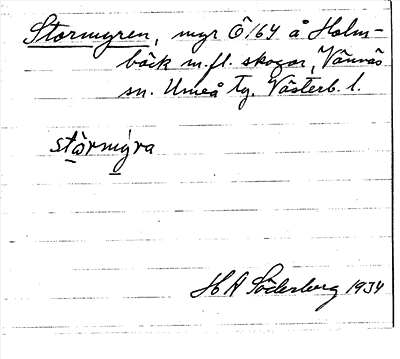 Stormyren, myr Ö164 å Holm-
bäck m.fl. skogar, Vännäs
sn. Umeå tg. Västerb. l.
stọ̀rmýra
H A Söderberg 1934